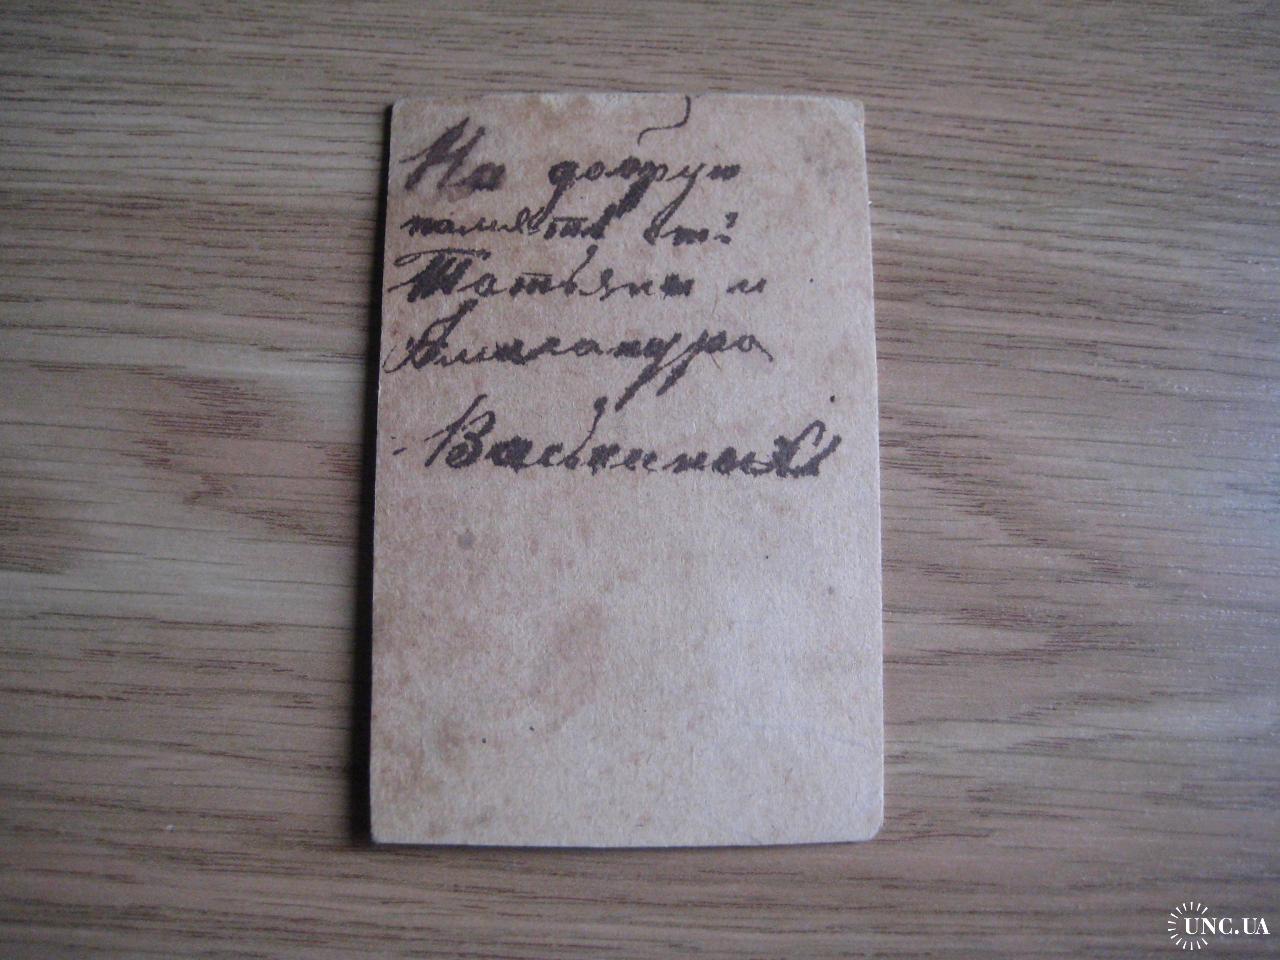 На добрую
память от:
Татьяны и
Александра
Васькиных
UNC.UA